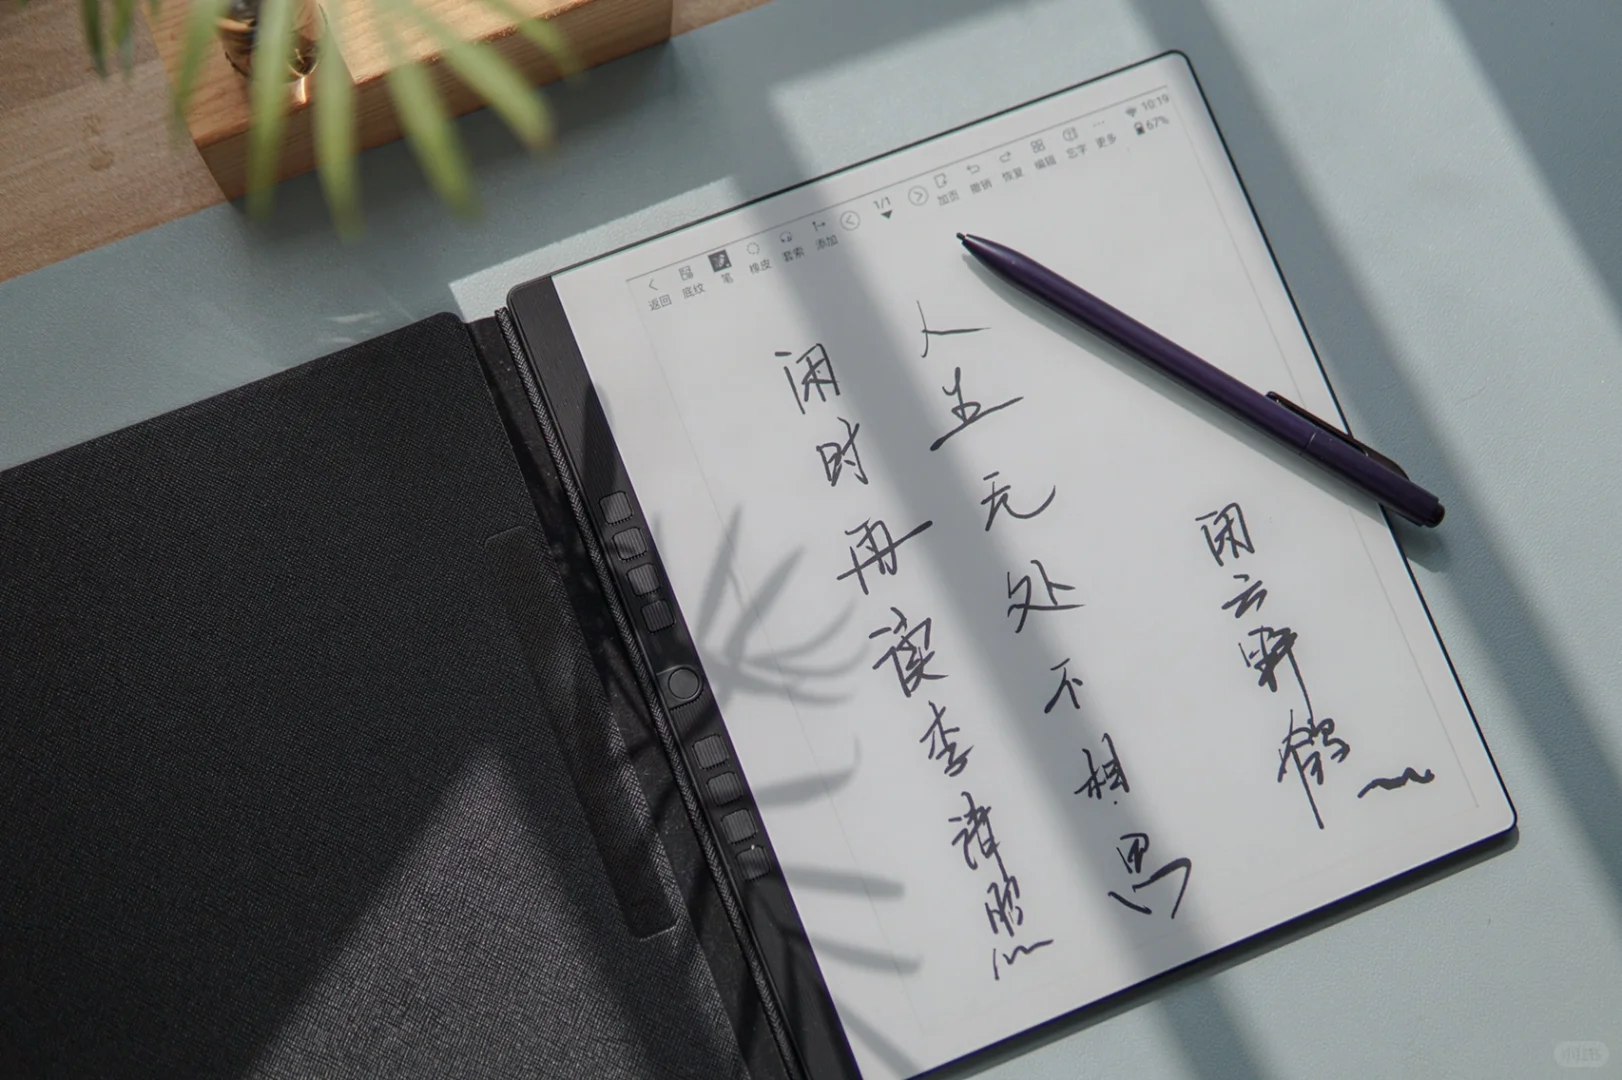 10:19
67%
返回 底纹 笔 橡皮 套索 添加 1/1 加页 撤销 恢复 编辑 忘字 更多
闲时再读李清照
人生无处不相思
闲云野鹤